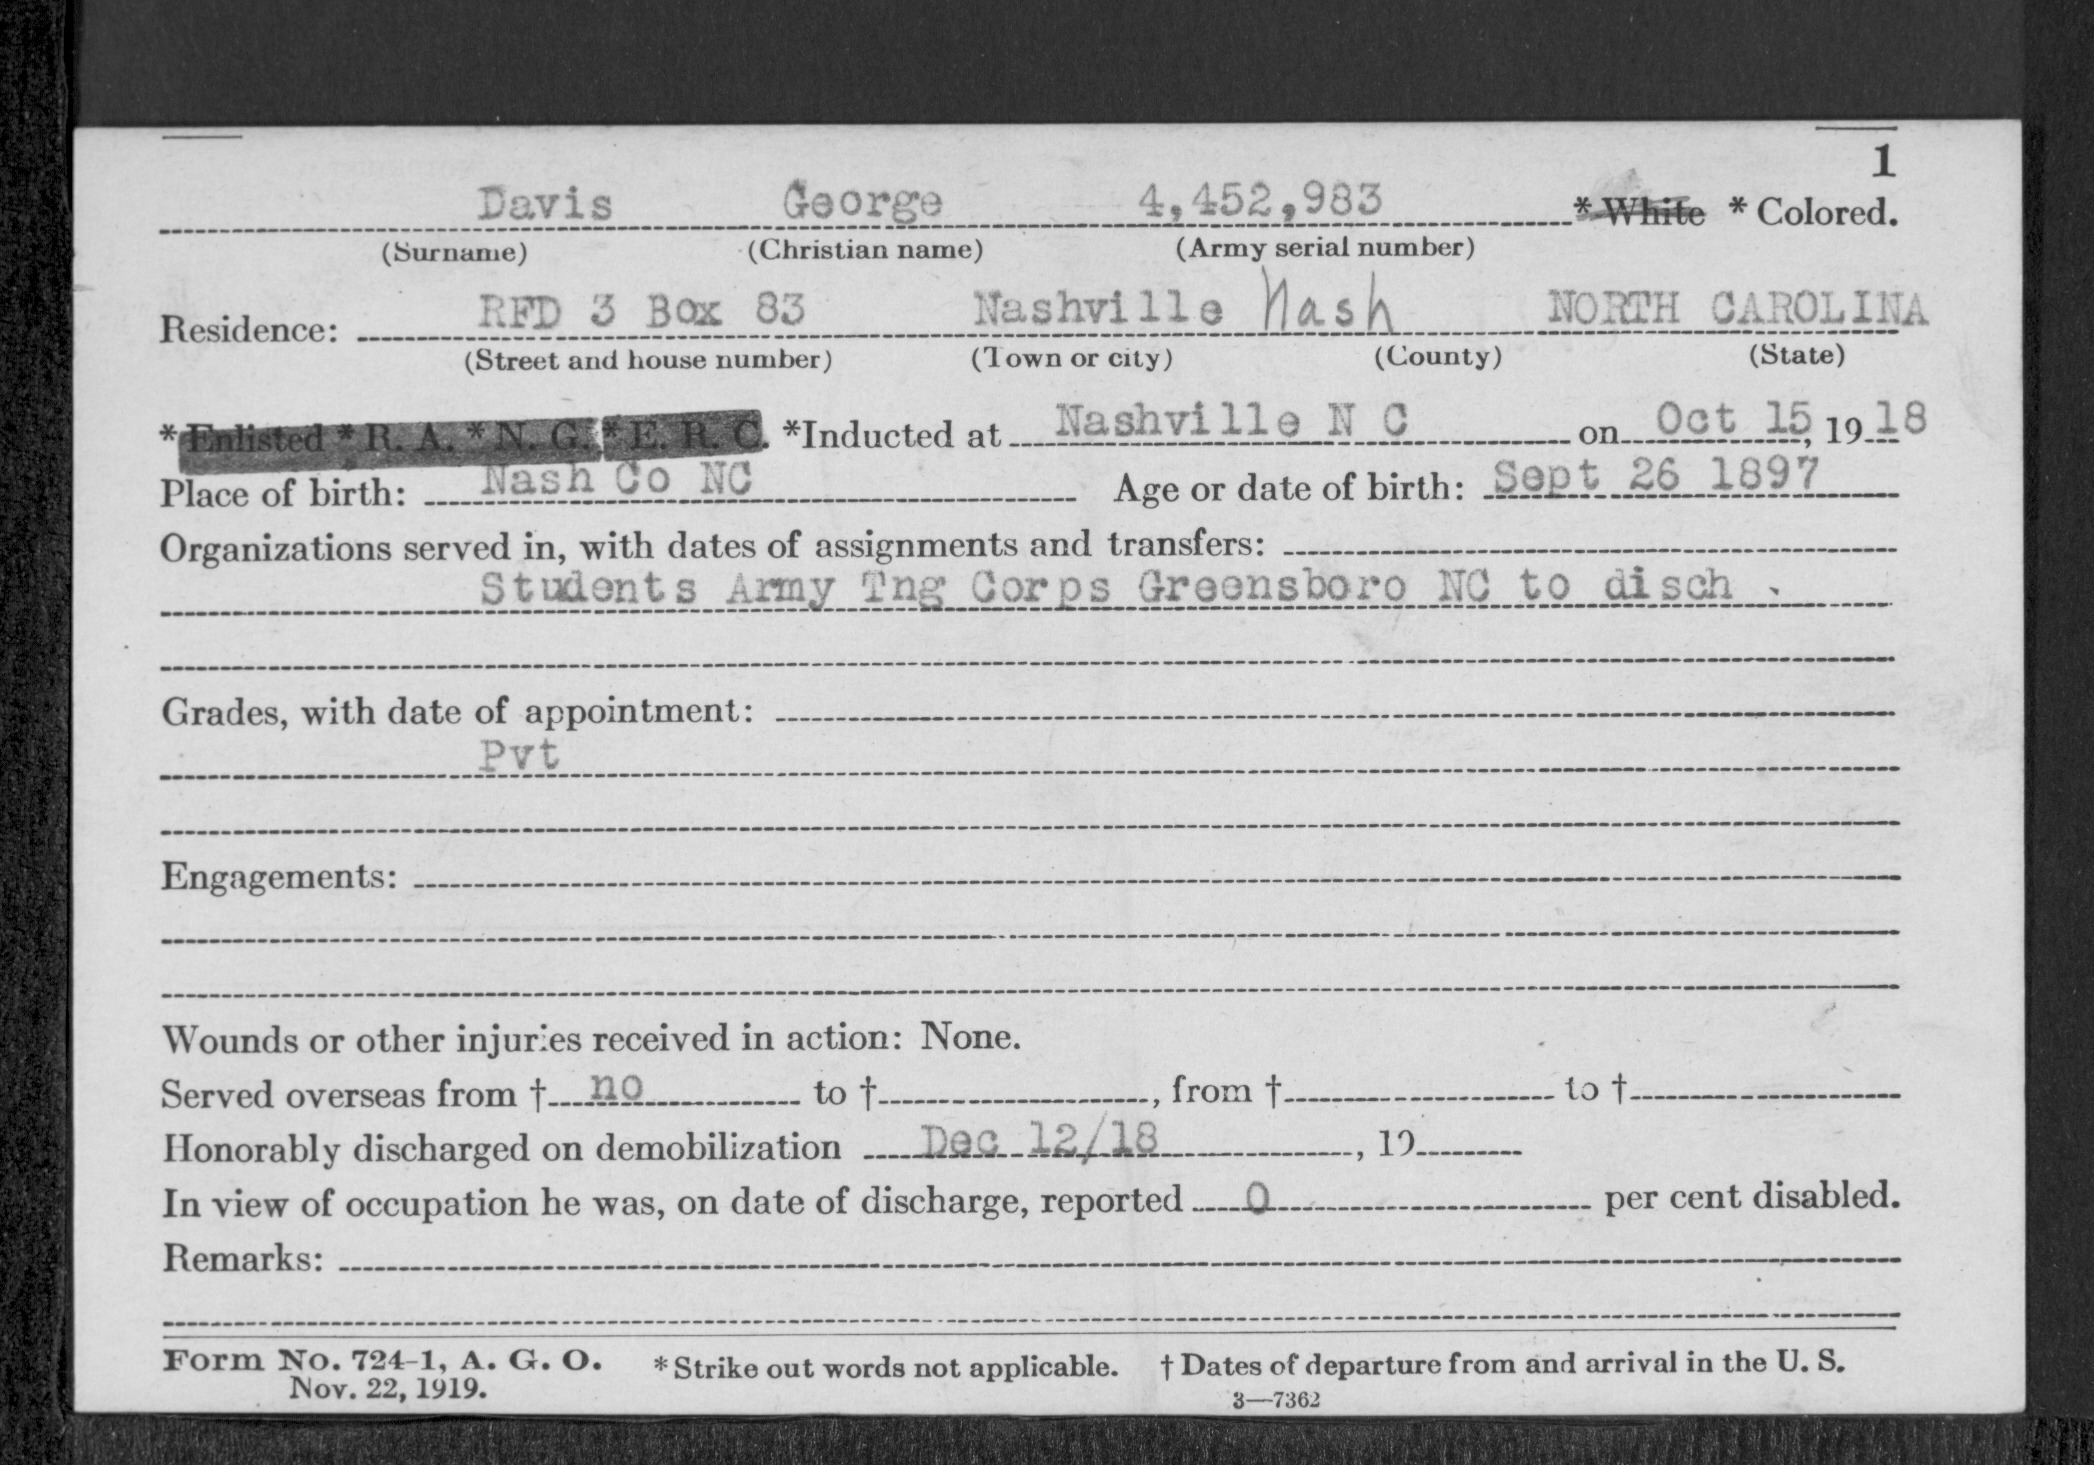 1
Davis George 4,452,983 * White * Colored.
(Surname) (Christian name) (Army serial number)
Residence: RFD 3 Box 83 Nashville Nash NORTH CAROLINA
(Street and house number) (Town or city) (County) (State)
* Enlisted * R. A. * N. G. * E. R. C. *Inducted at Nashville N C on Oct 15, 19 18
Place of birth: Nash Co NC Age or date of birth: Sept 26 1897
Organizations served in, with dates of assignments and transfers:
Students Army Tng Corps Greensboro NC to disch
Grades, with date of appointment:
Pvt
Engagements:
Wounds or other injuries received in action: None.
Served overseas from † no to †, from † to †
Honorably discharged on demobilization Dec 12/18, 19
In view of occupation he was, on date of discharge, reported 0 per cent disabled.
Remarks:
Form No. 724-1, A. G. O. * Strike out words not applicable. † Dates of departure from and arrival in the U. S.
Nov. 22, 1919.
3—7362